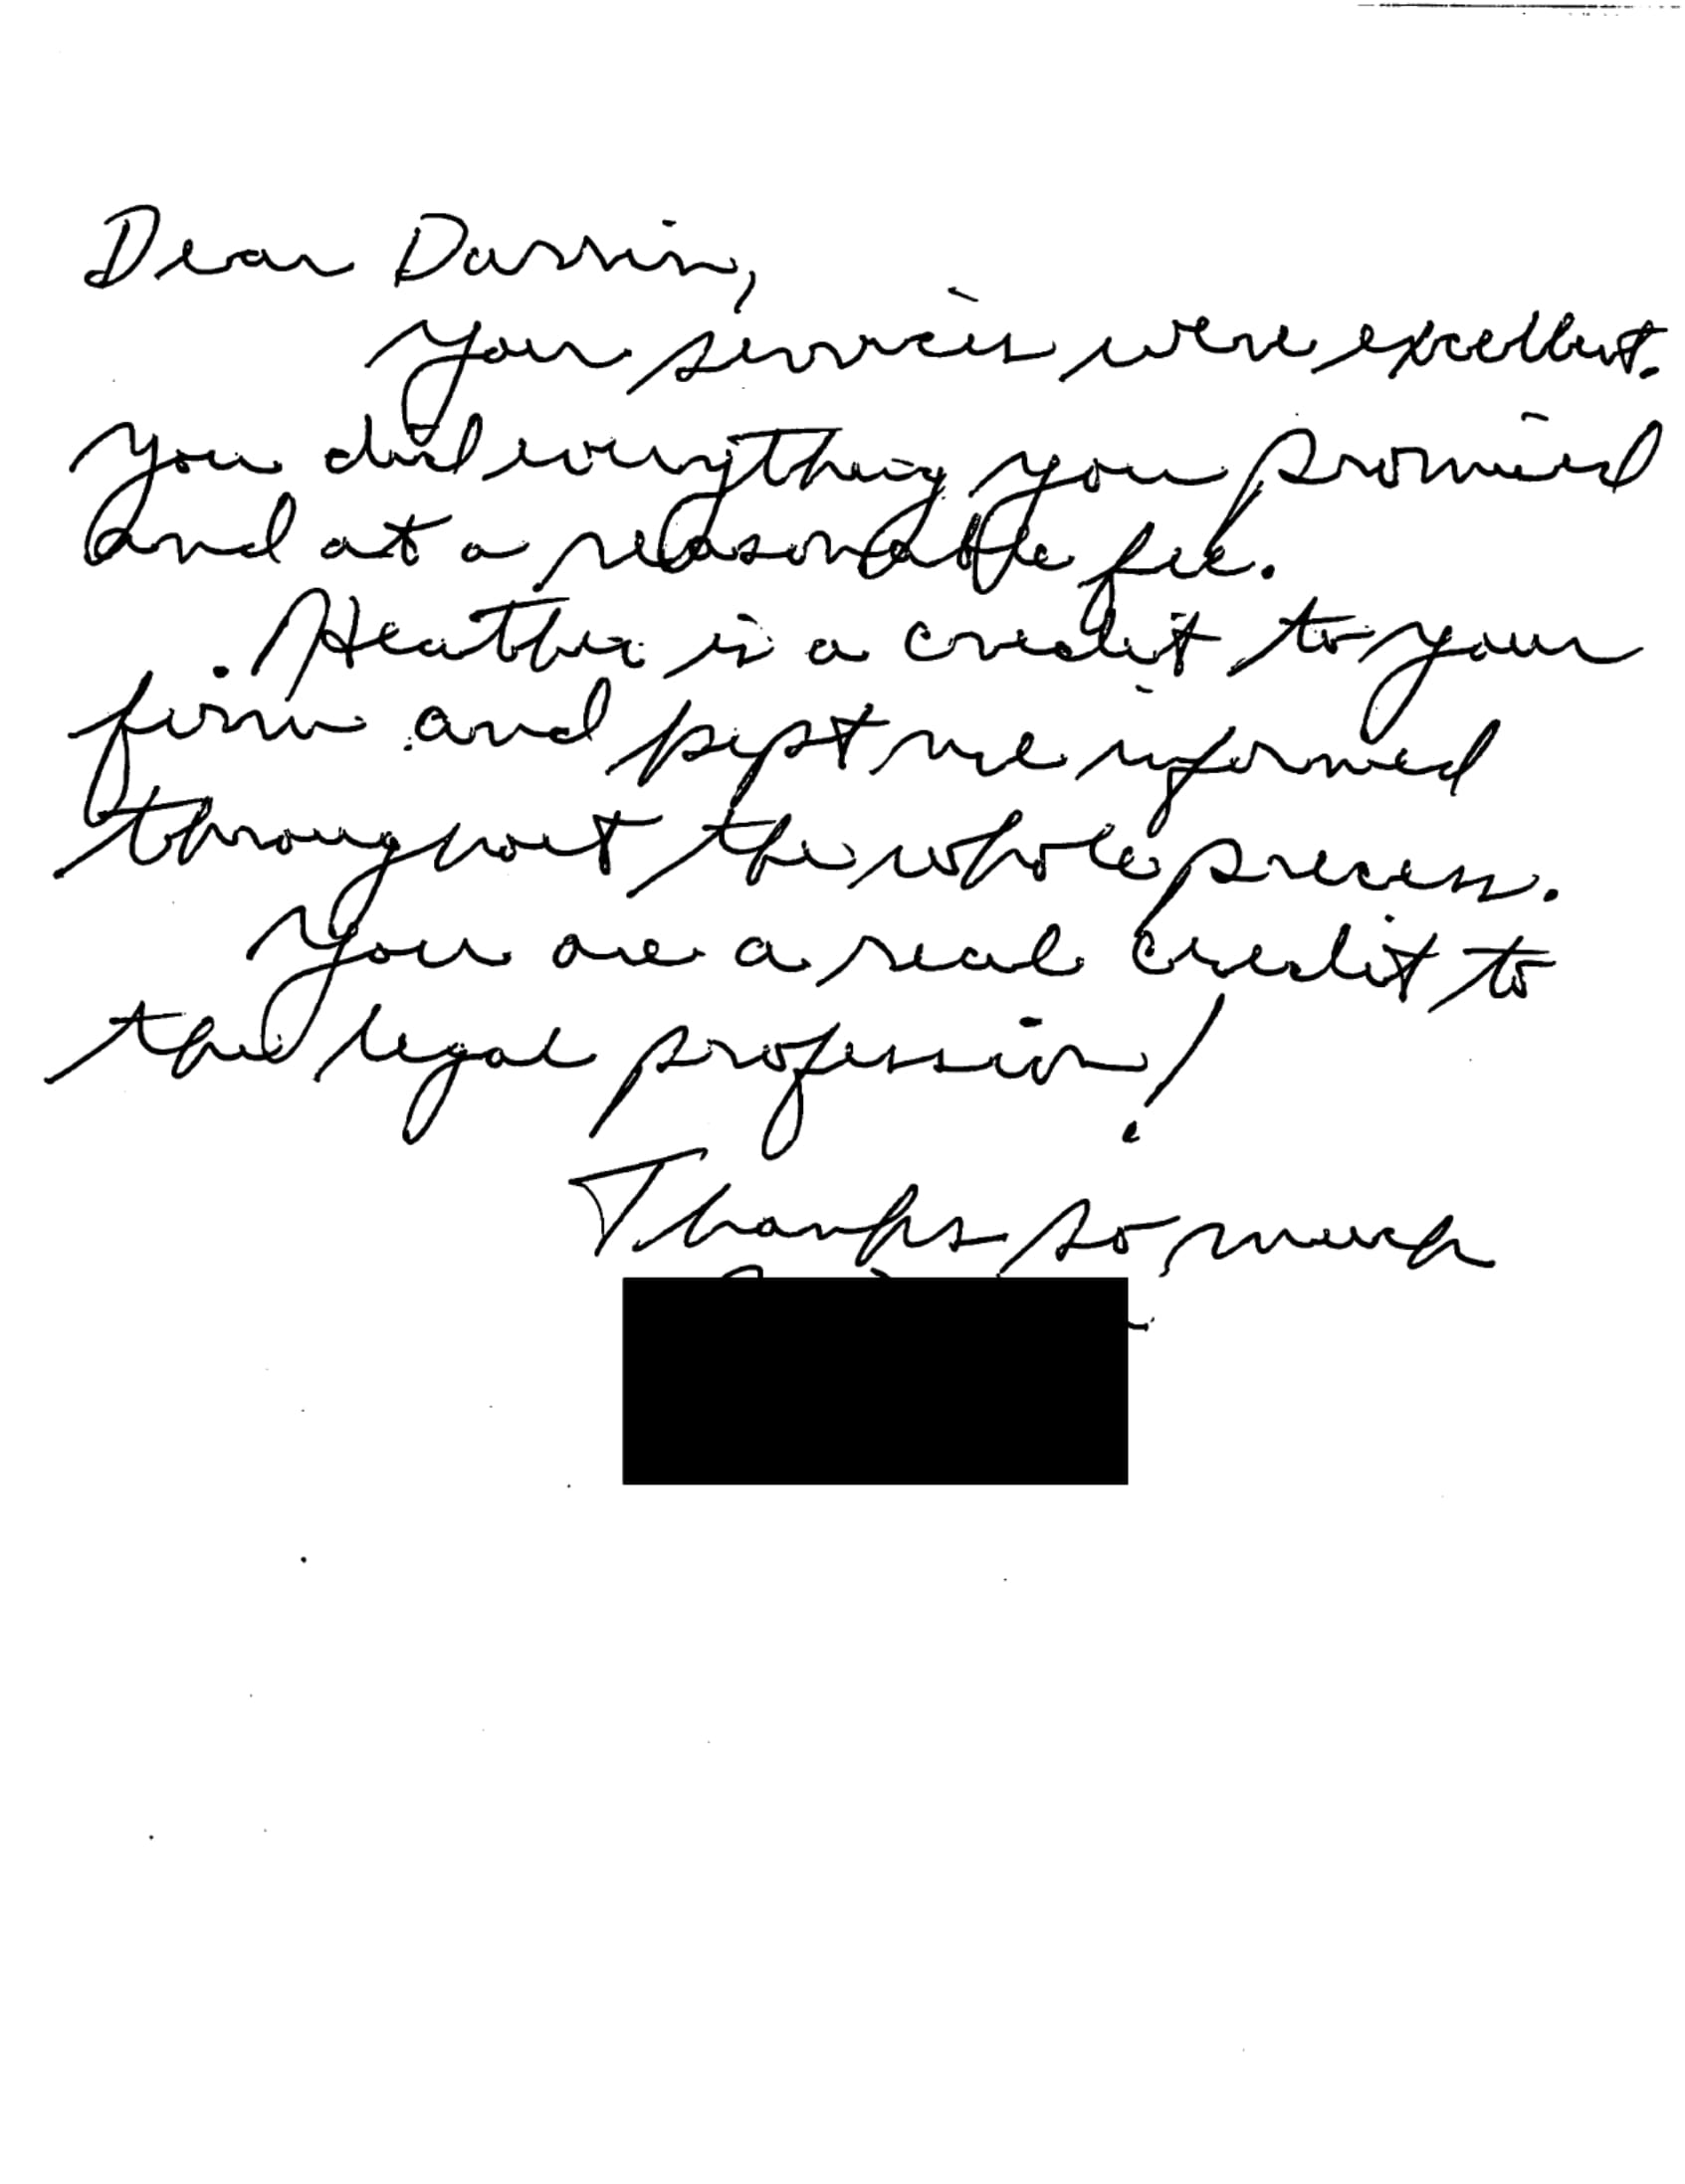 Dear Darrin,
Your services were excellent.
You did everything you promised
and at a reasonable fee.
Heather is a credit to your
firm and kept me informed
throughout the whole process.
You are a real credit to
the legal profession!
Thanks so much